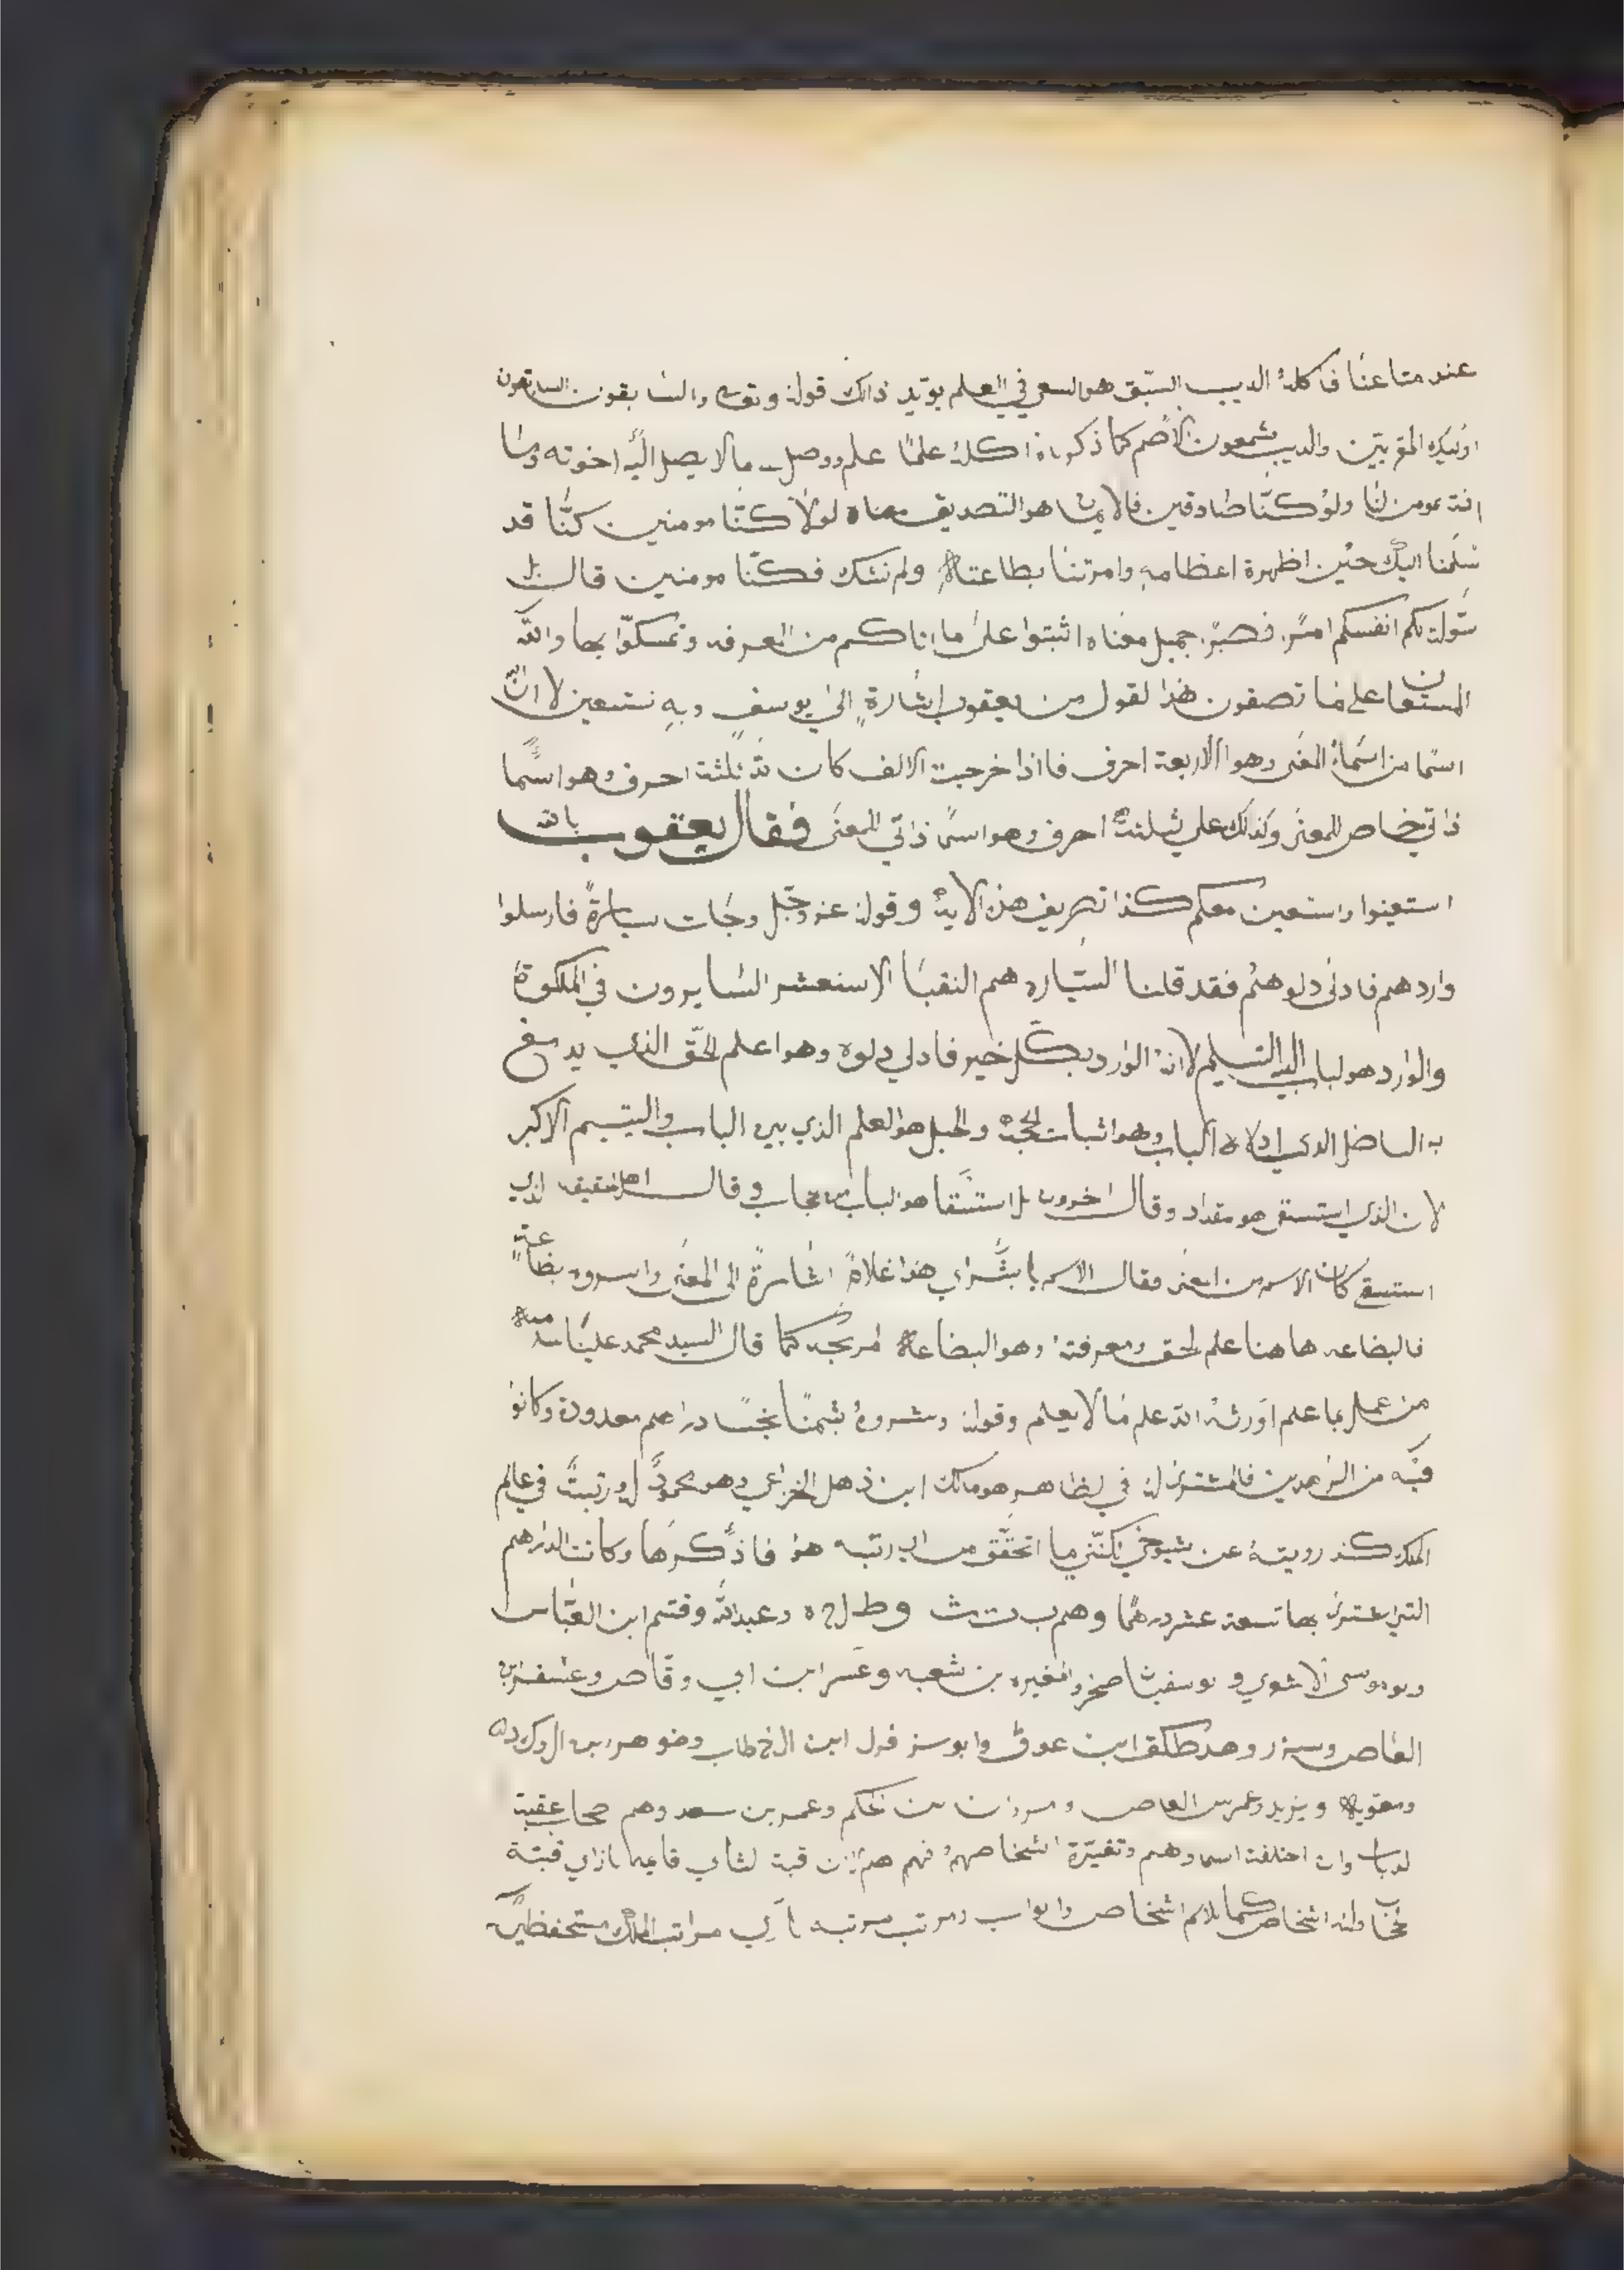 عند متاعنا فاكله الديب السبق هو السعي في العلم يويد ذالك قوله وتعالى والسابقون السابقون
اوليك المقربين والديب شمعون كما ذكرناه اكله علما علم ووصل ما لا يصل اليه اخوته وما
انت بمومن لنا ولو كنا صادقين فالايمان هو التصديق معناه لولا كنا مومنين كنا قد
سلمنا اليك حين اظهرة اعظامه وامرتنا بطاعته ولم نشك فكنا مومنين قال بل
سولت لكم انفسكم امر فصبر جميل معناه اثبتوا على ما اتاكم من المعرفه وتمسكوا بها والله
المستعان على ما تصفون هذا لقول من يعقوب اشارة الى يوسف وبه نستعين لان الله
اسما من اسماء المعنى وهو الاربعة احرف فااذا خرجت الالف كان لله ثلثة احرف وهو اسما
ذاتي خاص للمعنى وكذلك علي ثلثة احرف وهو اسم ذاتي للمعنى فقال يعقوب بالله
استعينوا واستعين معكم كذا تصريف هذه الاية وقوله عز وجل وجات سيارة فارسلوا
واردهم فادلى دلوهم فقد قلنا السياره هم النقبا الاسنعشر السايرون في الملكوة
والوارد هو لباب اليه التسليم لانه الوارد بكل خير فادلي دلوه وهوا علم الحق الذي يدمغ
به الباضل الدي ادلاه الباب وهو اثبات الحجة والحبل هو العلم الذي بين الباب واليتيم الاكبر
لان الذي استسقى هو مقداد وقال اخرون بل استسقا هو الباب من حجاب وقال اهل الحقيقه الذي
استسقي كان الاسم من المعنى فقال الاسم يا بشراي هذا غلام اشارة الى المعنى واسروه بضاعة
فالبضاعه هاهنا علم الحق ومعرفته وهو البضاعة كما قال السيد محمد علينا سلامه
من عمل بما علم اورثه الله علم ما لا يعلم وقوله وشروه بثمنا بخسا دراهم معدودة وكانوا
فيه من الزهدين فالمشتري له في لظاهر هو مالك ابن ذهل الخزاعي وهو محمود له رتبة في عالم
الملك كذ رويته عن شيوخي لكنني ما اتحقق من اي رتبه هو فاذكرها وكانت الدراهم
التي اشترى بها تسعة عشر درهما وهم ب ت ث و ط ل ح ه وعبدالله وقثم ابن العباس
وبو موسى الاشعري و بو سفيان صخر والمغيره بن شعبه وعمر ابن ابي وقاص
العاص ابن عوف ابن الخطاب
ومعوية ويزيد وعمر بن العاص ومروان بن الحكم وعمر بن سعد وهم صحاب عقبة
لدباب وان اختلفت اسماوهم وتغيرة اشخاصهم فهم قبة لثاني قايمه بازاي قبة
لثاني اشخاص كما اشخاص وابواب ومرتب مرتبه مراتب الملك